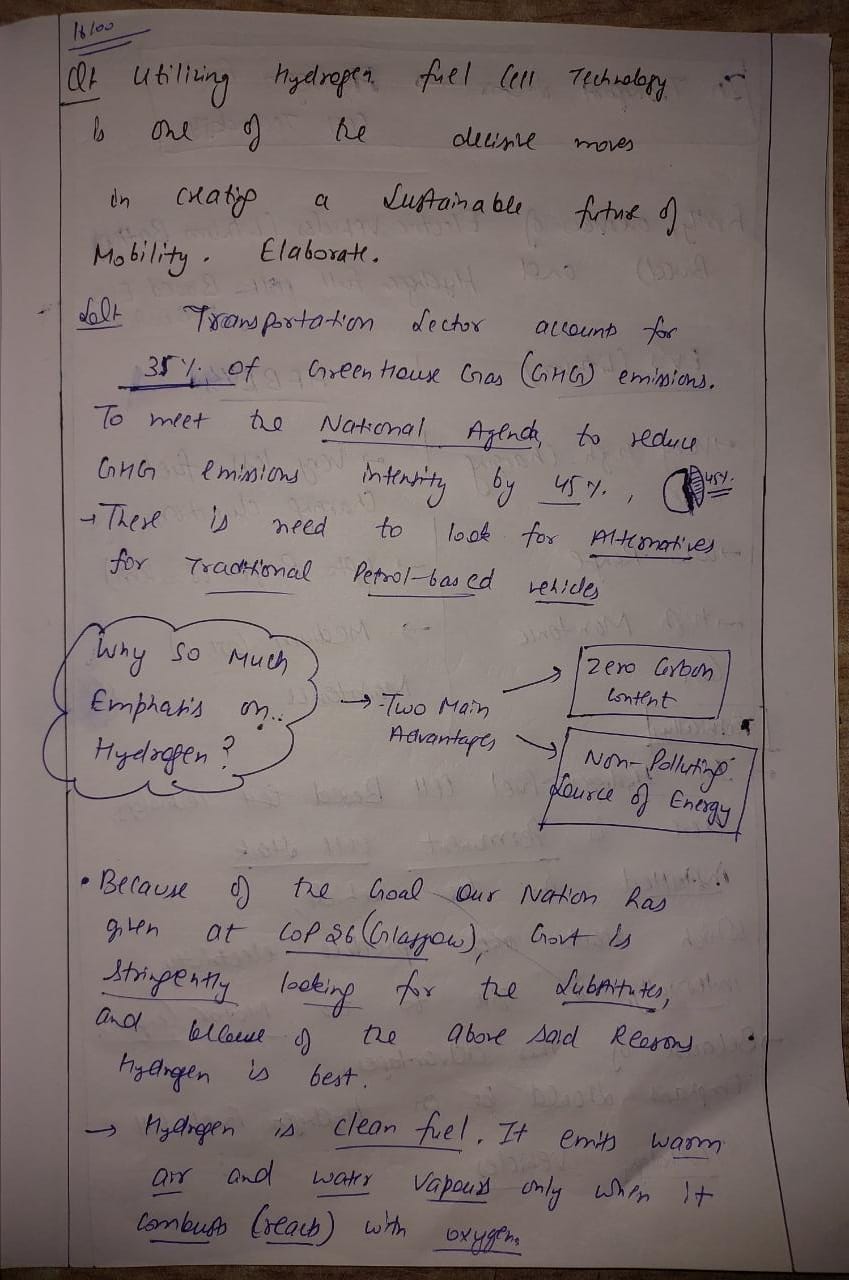 16/100
Q1 Utilizing Hydrogen fuel Cell Technology
is one of the decisive moves
in creating a Sustainable future of
Mobility. Elaborate.
Sol:- Transportation Sector accounts for
35% of Green House Gas (GHG) emissions.
To meet the National Agenda, to reduce
GHG emissions intensity by 45%, 45%
→ There is need to look for Alternatives
for Traditional Petrol-based vehicles
Why so Much
Emphasis on..
Hydrogen?
→ Two Main
Advantages
Zero Carbon
Content
Non-Polluting
Source of Energy
• Because of the Goal our Nation has
given at COP 26 (Glasgow), Govt is
stringently looking for the Substitutes,
and because of the above said Reasons
Hydrogen is best.
→ Hydrogen is clean fuel. It emits warm
air and water vapours only when it
combusts (reacts) with oxygen.